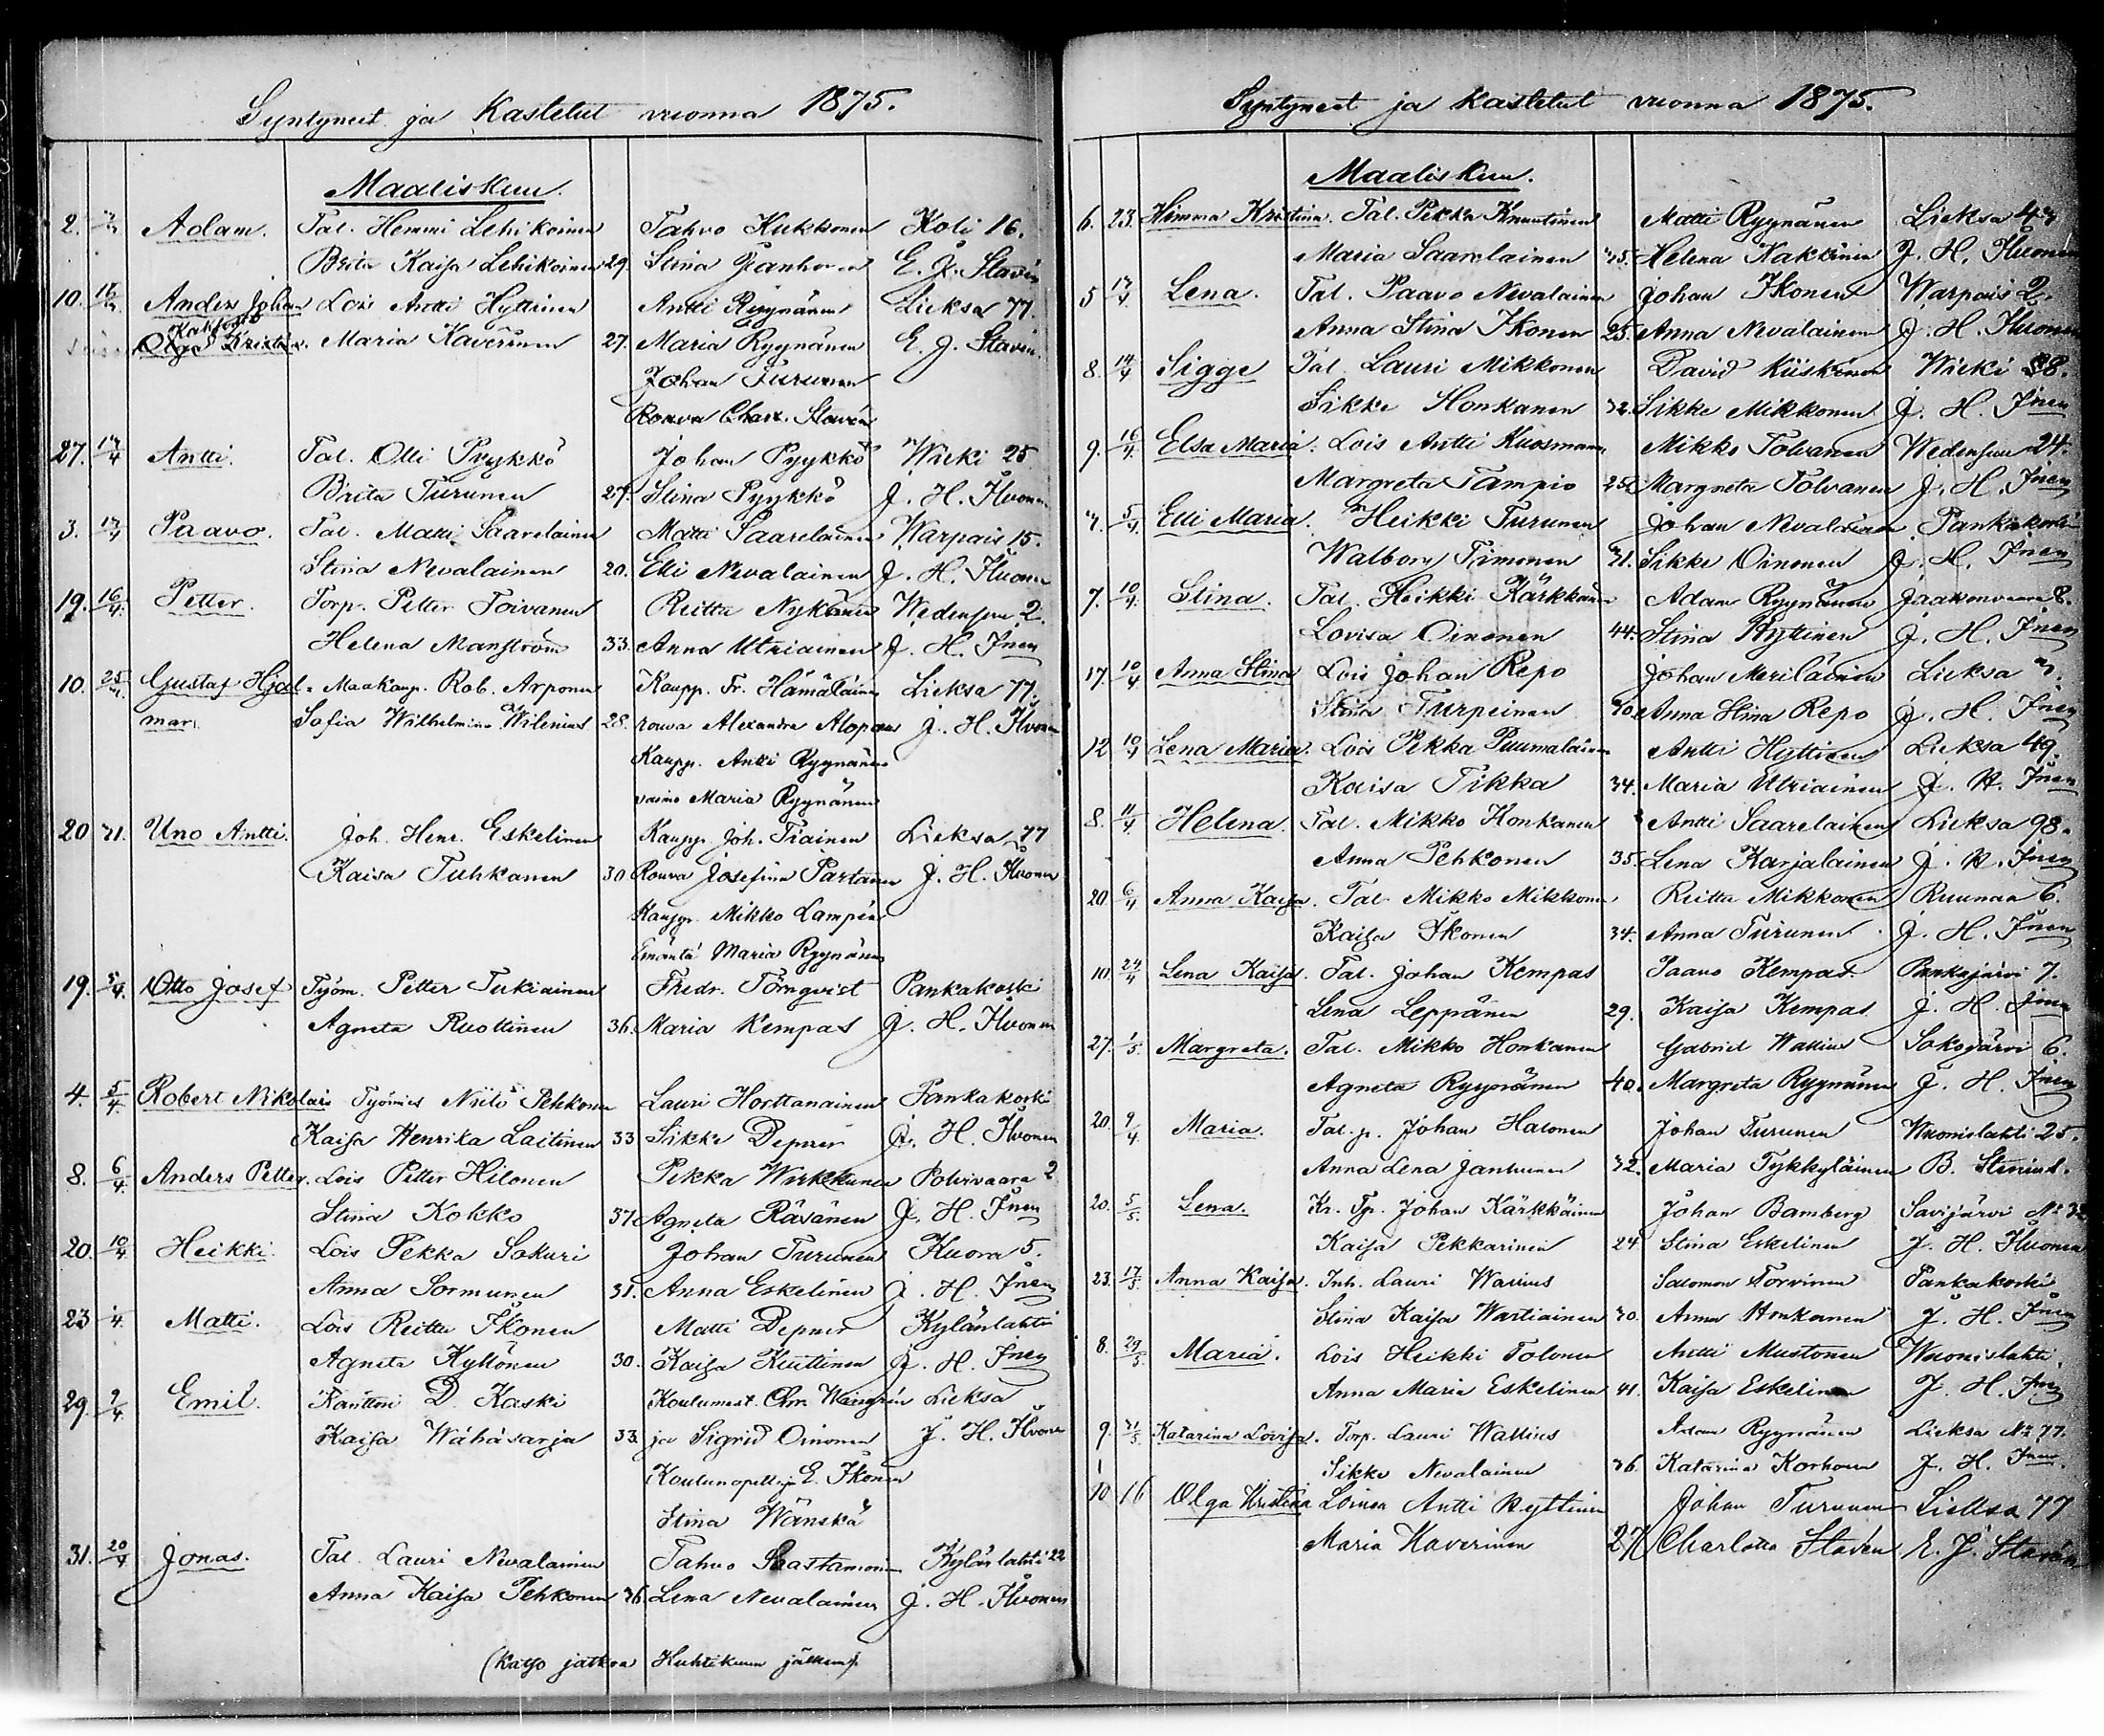 Syntyneet ja Kastetut vuonna 1875.
Maaliskuu.
2. Adam. Tal. Hemmi Lehikoinen Tahvo Kukkonen Koli 16.
Brita Kaisa Lehikoinen 29. Stina E. J. Stavén
10. 16 Anders Johan Lois Antti Hyttinen Antti Ryynänen Lieksa 77.
Kaksoset
Olga Kristin. Maria Kaverinen 27. Maria Ryynänen E. J. Stavén.
Johan Turunen
Rouva Charl. Stavén
27. Antti. Tal. Olli Pyykkö Johan Pyykkö Wieki 25
Brita Turunen 27. Stina Pyykkö J. H. Iivonen
3. Paavo. Tal. Matti Saarelainen Matti Saarelainen Warpais 15.
Stina Nevalainen 20. Elli Nevalainen J. H. Iivonen
19. 16/4. Petter. Torp. Petter Toivanen Reitta Nykänen Wedensuu 2.
Helena Manström 33. Anna Utriainen J. H. Inen
10. Gustaf Hjal- Maakaup. Rob. Arponen Kaupp. Fr. Hämäläinen Lieksa 77.
mar. Sofia Wilhelmina Wilenius 28. rouva Alexandra Alopæus J. H. Iivonen
Kaupp. Antti Ryynänen
vaimo Maria Ryynänen
20 31. Uno Antti. Joh. Henr. Eskelinen Kaupp. Joh. Tiainen Lieksa 77
Kaisa Tuhkanen 30 Rouva Josefina Partanen J. H. Iivonen
Kaupp. Mikko Lampén
Emäntä Maria Ryynänen
19. Otto Josef Työm. Petter Tukiainen Fredr. Törnqvist Pankakoski
Agneta Ruottinen 36. Maria Kempas J. H. Iivonen
4. 5/4 Robert Nikolai Työmies Niilo Pehkonen Lauri Horttanainen Pankakoski
Kaisa Henrika Laitinen 33 Sikke Depner J. H. Iivonen
8. 6/4. Anders Petter. Lois Petter Hilonen Pekka Wirkkunen Polvivaara 2
Stina Kokko 37. Agneta Räsänen J. H. Inen
20. 10/4 Heikki. Lois Pekka Sokuri Johan Turunen Kuora 5.
Anna Sormunen 31. Anna Eskelinen J. H. Inen
23 Matti. Lois Reitta Ikonen Matti Depner Kylänlahti
Agneta Kyllönen 30. Kaisa Kuttinen J. H. Inen
29. Emil. Kanttori D. Kaski Koulumest. Chr. Lieksa
Kaisa Wähäsarja 33. ja Sigrid Oinonen J. H. Iivonen
E. Ikonen
Stina Wänskä
31. 20/4 Jonas. Tal. Lauri Nevalainen Tahvo Saastamoinen Kylänlahti 22
Anna Kaisa Pehkonen 36. Lena Nevalainen J. H. Iivonen
(Katso jatkoa Huhtikuun jälkeen).
Syntyneet ja kastetut vuonna 1875.
Maaliskuu.
6. 23. Himma Kristina. Tal. Pekka Knuutinen Matti Ryynänen Lieksa 47
Maria Saarelainen 35. Helena Kakkinen J. H. Iivonen
5 Lena. Tal. Paavo Nevalainen Johan Ikonen Warpais 2.
Anna Stina Ikonen 25. Anna Nevalainen J. H. Iivonen
8. 14/4 Sigge Tal. Lauri Mikkonen David Kiiskinen Wieki 38.
Sikke Honkanen 32. Sikke Mikkonen J. H. Inen
9. 16/4. Elsa Maria. Lois Antti Kuosmanen Mikko Tolvanen Wedensuu 24.
Margreta Tampio 25. Margreta Tolvanen J. H. Inen
7. 5/4. Elli Maria. Heikki Turunen Johan Nevalainen Pankakoski
Walborg Timonen 31. Sikke Oinonen J. H. Inen
7. 10/4. Stina. Tal. Heikki Kärkkäinen Adam Ryynänen Jaakonvaara 8.
Lovisa Oinonen 44. Stina Hyttinen J. H. Inen
17. 10/4 Anna Stina Lois Johan Repo Johan Meriläinen Lieksa 7.
Stina Turpeinen 30. Anna Stina Repo J. H. Inen
12 10/4 Lena Maria. Lois Pekka Puumalainen Antti Hyttinen Lieksa 49.
Kaisa Tikka 34. Maria Utriainen J. H. Inen
8. 11/4 Helena. Tal. Mikko Honkanen Antti Saarelainen Lieksa 98.
Anna Pehkonen 35. Lena Karjalainen J. H. Inen
20. 6/4 Anna Kaisa. Tal. Mikko Mikkonen Reitta Mikkonen Ruunaa 6.
Kaisa Ikonen 34. Anna Turunen J. H. Inen
10. 24/4 Lena Kaisa. Tal. Johan Kempas Paavo Kempas Pankajärvi 7.
Lena Leppänen 29. Kaisa Kempas J. H. Inen
27. 1/5. Margreta. Tal. Mikko Honkanen Gabriel Wallius Sokojärvi 6.
Agneta Ryynänen 40. Margreta Ryynänen J. H. Inen
20. 9/4 Maria. Tal. p. Johan Halonen Johan Turunen Wuonislahti 25.
Anna Lena Jantunen 32. Maria Tykkyläinen B. Stenius.
20. 5/5. Lena. Kr. Tp. Johan Kärkkäinen Johan Bamberg Savijärvi
Kaisa Pekkarinen 24 Stina Eskelinen J. H. Iivonen
23. 17/5 Anna Kaisa. Inh. Lauri Wallius Salomon Torvinen Pankakoski
Stina Kaisa Wartiainen 30. Anna Honkanen J. H. Inen
8. 29/5 Maria. Lois Heikki Tolonen Antti Mustonen Wuonislahti.
Anna Maria Eskelinen 41. Kaisa Eskelinen J. H. Inen
9. 31/5 Katarina Lovisa. Torp. Lauri Wallius Adam Ryynänen Lieksa No 77.
Sikke Nevalainen 36. Katarina Korhonen J. H. Inen.
10 16 Olga Kristina Loinen Antti Hyttinen Johan Turunen Lieksa 77
Maria Kaverinen 27 Charlotta Stavén E. J. Stavén